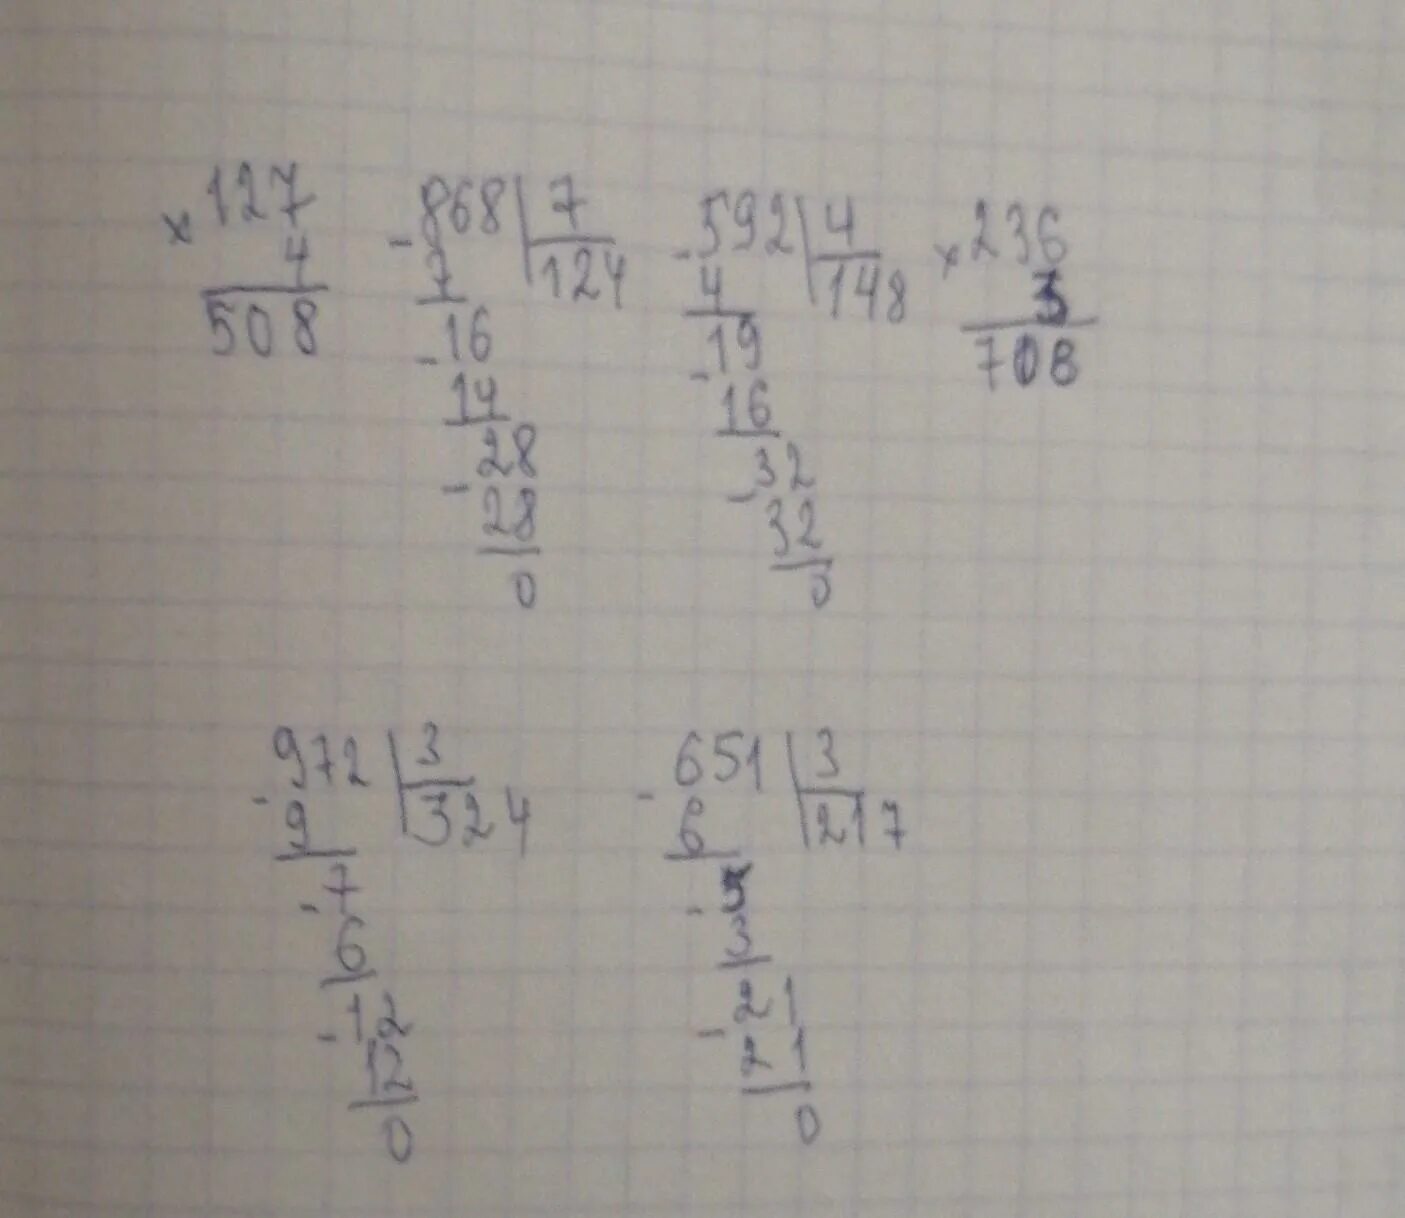 × 127
4
508
- 868 | 7
7 | 124
- 16
14
- 28
28
0
- 592 | 4
4 | 148
- 19
16
- 32
32
0
× 236
3
708
- 972 | 3
9 | 324
- 7
6
- 12
12
0
- 651 | 3
6 | 217
- 5
3
- 21
21
0